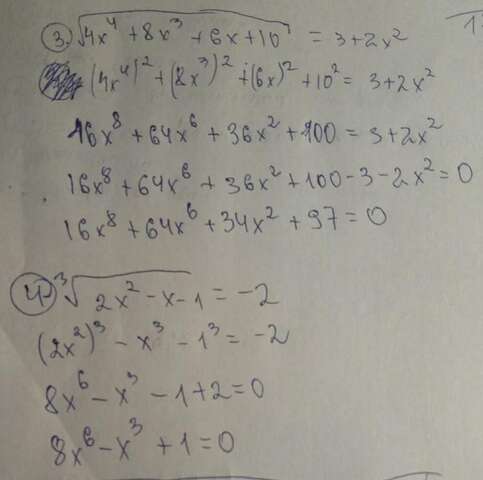 3. √(4x⁴ + 8x³ + 6x + 10) = 3 + 2x²
(4x⁴)² + (8x³)² + (6x)² + 10² = 3 + 2x²
16x⁸ + 64x⁶ + 36x² + 100 = 3 + 2x²
16x⁸ + 64x⁶ + 36x² + 100 - 3 - 2x² = 0
16x⁸ + 64x⁶ + 34x² + 97 = 0
4. ³√(2x² - x - 1) = -2
(2x²)³ - x³ - 1³ = -2
8x⁶ - x³ - 1 + 2 = 0
8x⁶ - x³ + 1 = 0